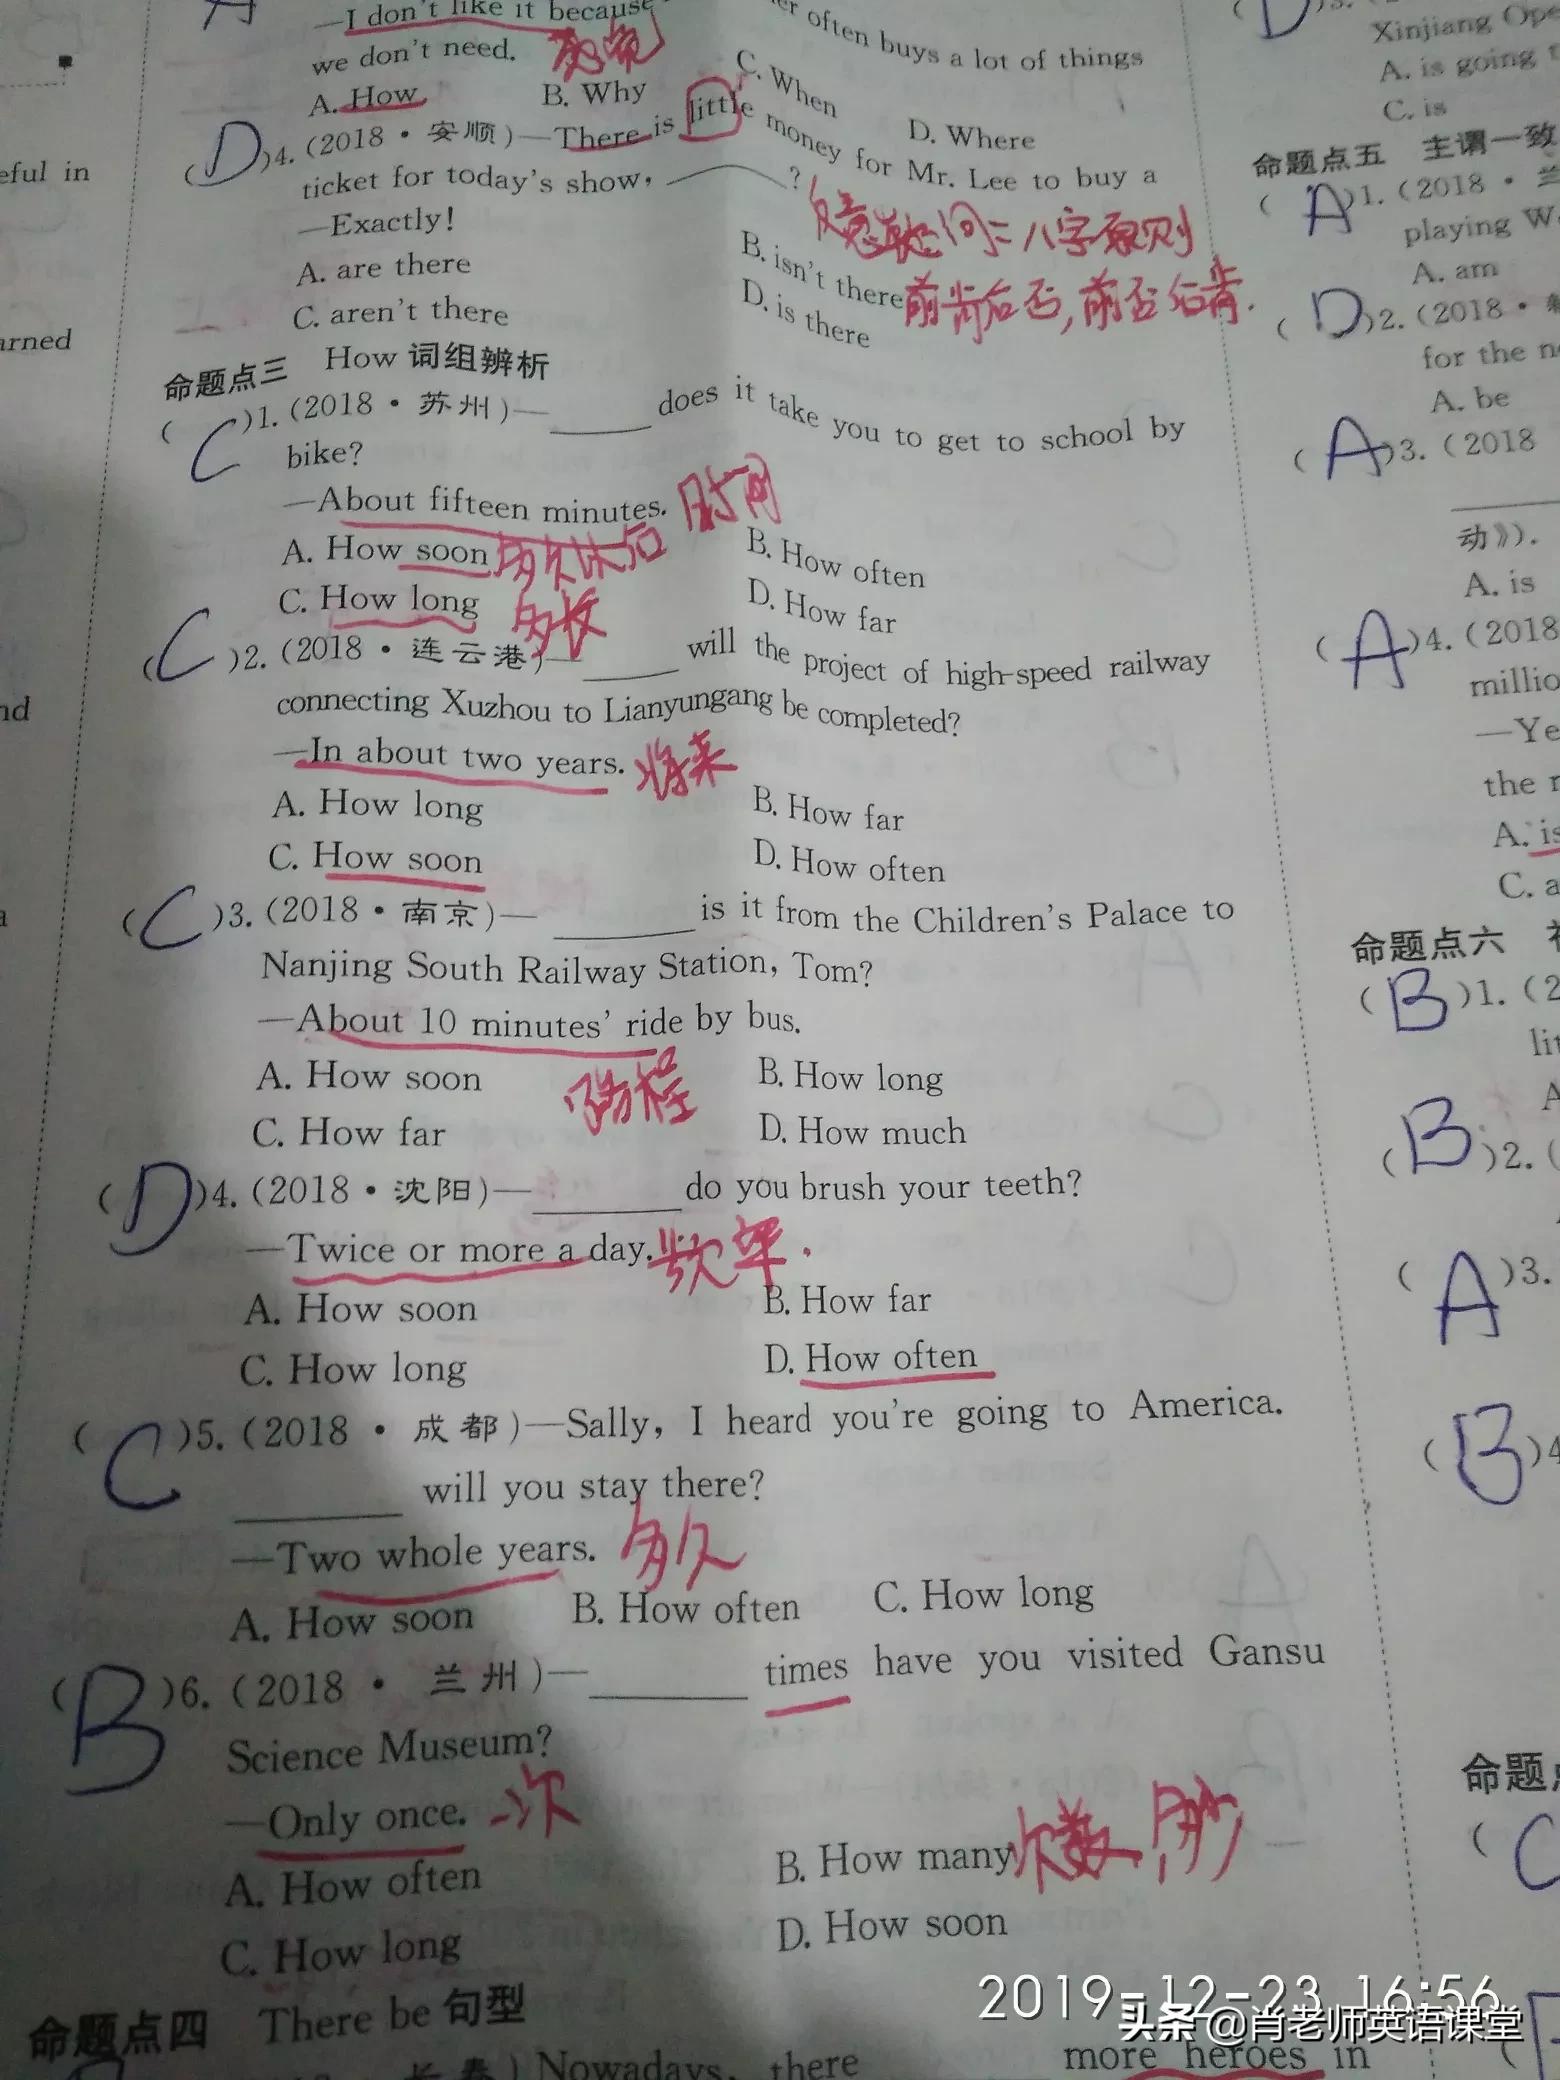 A
—I don't like it because
er often buys a lot of things
we don't need.
A. How B. Why C. When D. Where
(D)4. (2018·安顺)—There is little money for Mr. Lee to buy a
ticket for today's show, ?
—Exactly!
反意疑问: 八字原则
A. are there B. isn't there
前肯后否, 前否后肯.
C. aren't there D. is there
命题点三 How 词组辨析
(C)1. (2018·苏州)—_____ does it take you to get to school by
bike?
—About fifteen minutes. 时间
A. How soon 多久以后 B. How often
C. How long 多长 D. How far
(C)2. (2018·连云港)—_____ will the project of high-speed railway
connecting Xuzhou to Lianyungang be completed?
—In about two years. 将来
A. How long B. How far
C. How soon D. How often
(C)3. (2018·南京)—_____ is it from the Children's Palace to
Nanjing South Railway Station, Tom?
—About 10 minutes' ride by bus.
路程
A. How soon B. How long
C. How far D. How much
(D)4. (2018·沈阳)—_____ do you brush your teeth?
—Twice or more a day.
A. How soon B. How far
C. How long D. How often
(C)5. (2018·成都)—Sally, I heard you're going to America.
_____ will you stay there?
—Two whole years. 多久
A. How soon B. How often C. How long
(B)6. (2018·兰州)—_____ times have you visited Gansu
Science Museum?
—Only once. 一次
A. How often B. How many 次数
C. How long D. How soon
命题点四 There be 句型
长春) Nowadays, there _____ more heroes in
eful in
arned
nd
a
(D)3.
Xinjiang Ope
A. is going t
C. is
命题点五 主谓一致
(A)1. (2018·兰
playing W
A. am
(D)2. (2018·
for the n
A. be
(A)3. (2018
动》).
A. is
(A)4. (2018
millio
—Ye
the r
A. is
C. a
命题点六
(B)1. (2
lit
A
(B)2. (
(A)3.
(B)4
命题点
(C
2019-12-23 16:56
头条 @肖老师英语课堂